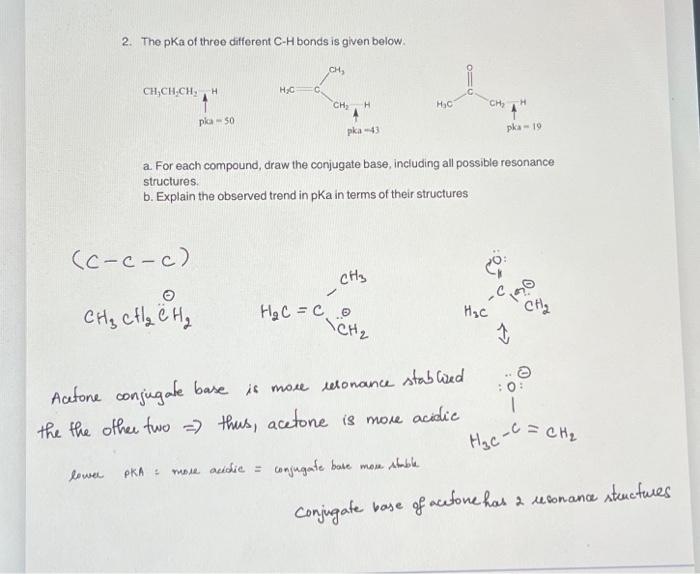 2. The pKa of three different C-H bonds is given below.
CH₃CH₂CH₂ H
pka = 50
CH₃
H₂C C
CH₂ H
pka =43
O
C
H₃C CH₂ H
pka = 19
a. For each compound, draw the conjugate base, including all possible resonance
structures.
b. Explain the observed trend in pKa in terms of their structures
(C-C-C)
CH₃ CH₂ C̈H₂ ⊖
CH₃
H₂C = C
⊖ CH₂
:O:
C
H₃C CH₂ ⊖
↕
:O: ⊖
H₃C-C = CH₂
Acetone conjugate base is more resonance stablized
the the other two => thus, acetone is more acidic
lower pKA = more acidic = conjugate base more stable
Conjugate base of acetone has 2 resonance structures